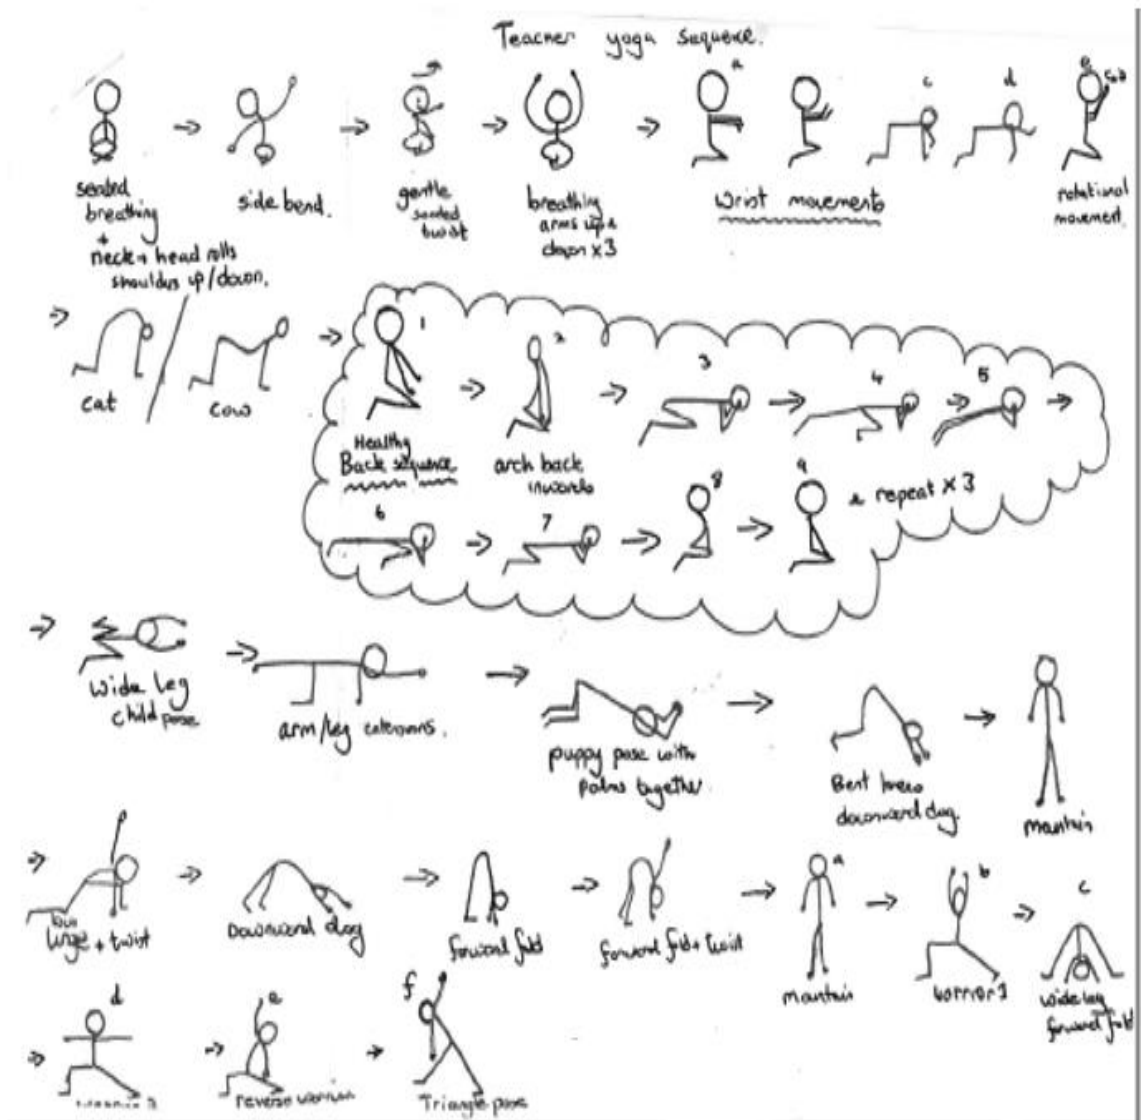 Teacher yoga sequence.
a
c
d
e
seated
breathing
+
neck + head rolls
shoulders up/down.
side bend.
gentle
seated
twist
breathing
arms up &
down x 3
wrist movements
rotational
movement.
cat
cow
1
2
3
4
5
Healthy
Back sequence
arch back
inwards
6
7
8
9
& repeat x 3
wide leg
child pose
arm/leg extensions.
puppy pose with
palms together
Bent knees
downward dog.
mantain
low
lunge + twist
Downward dog
forward fold
forward fold + twist
a
mantain
b
warrior 1
c
wide leg
forward fold
d
e
reverse warrior
f
Triangle pose